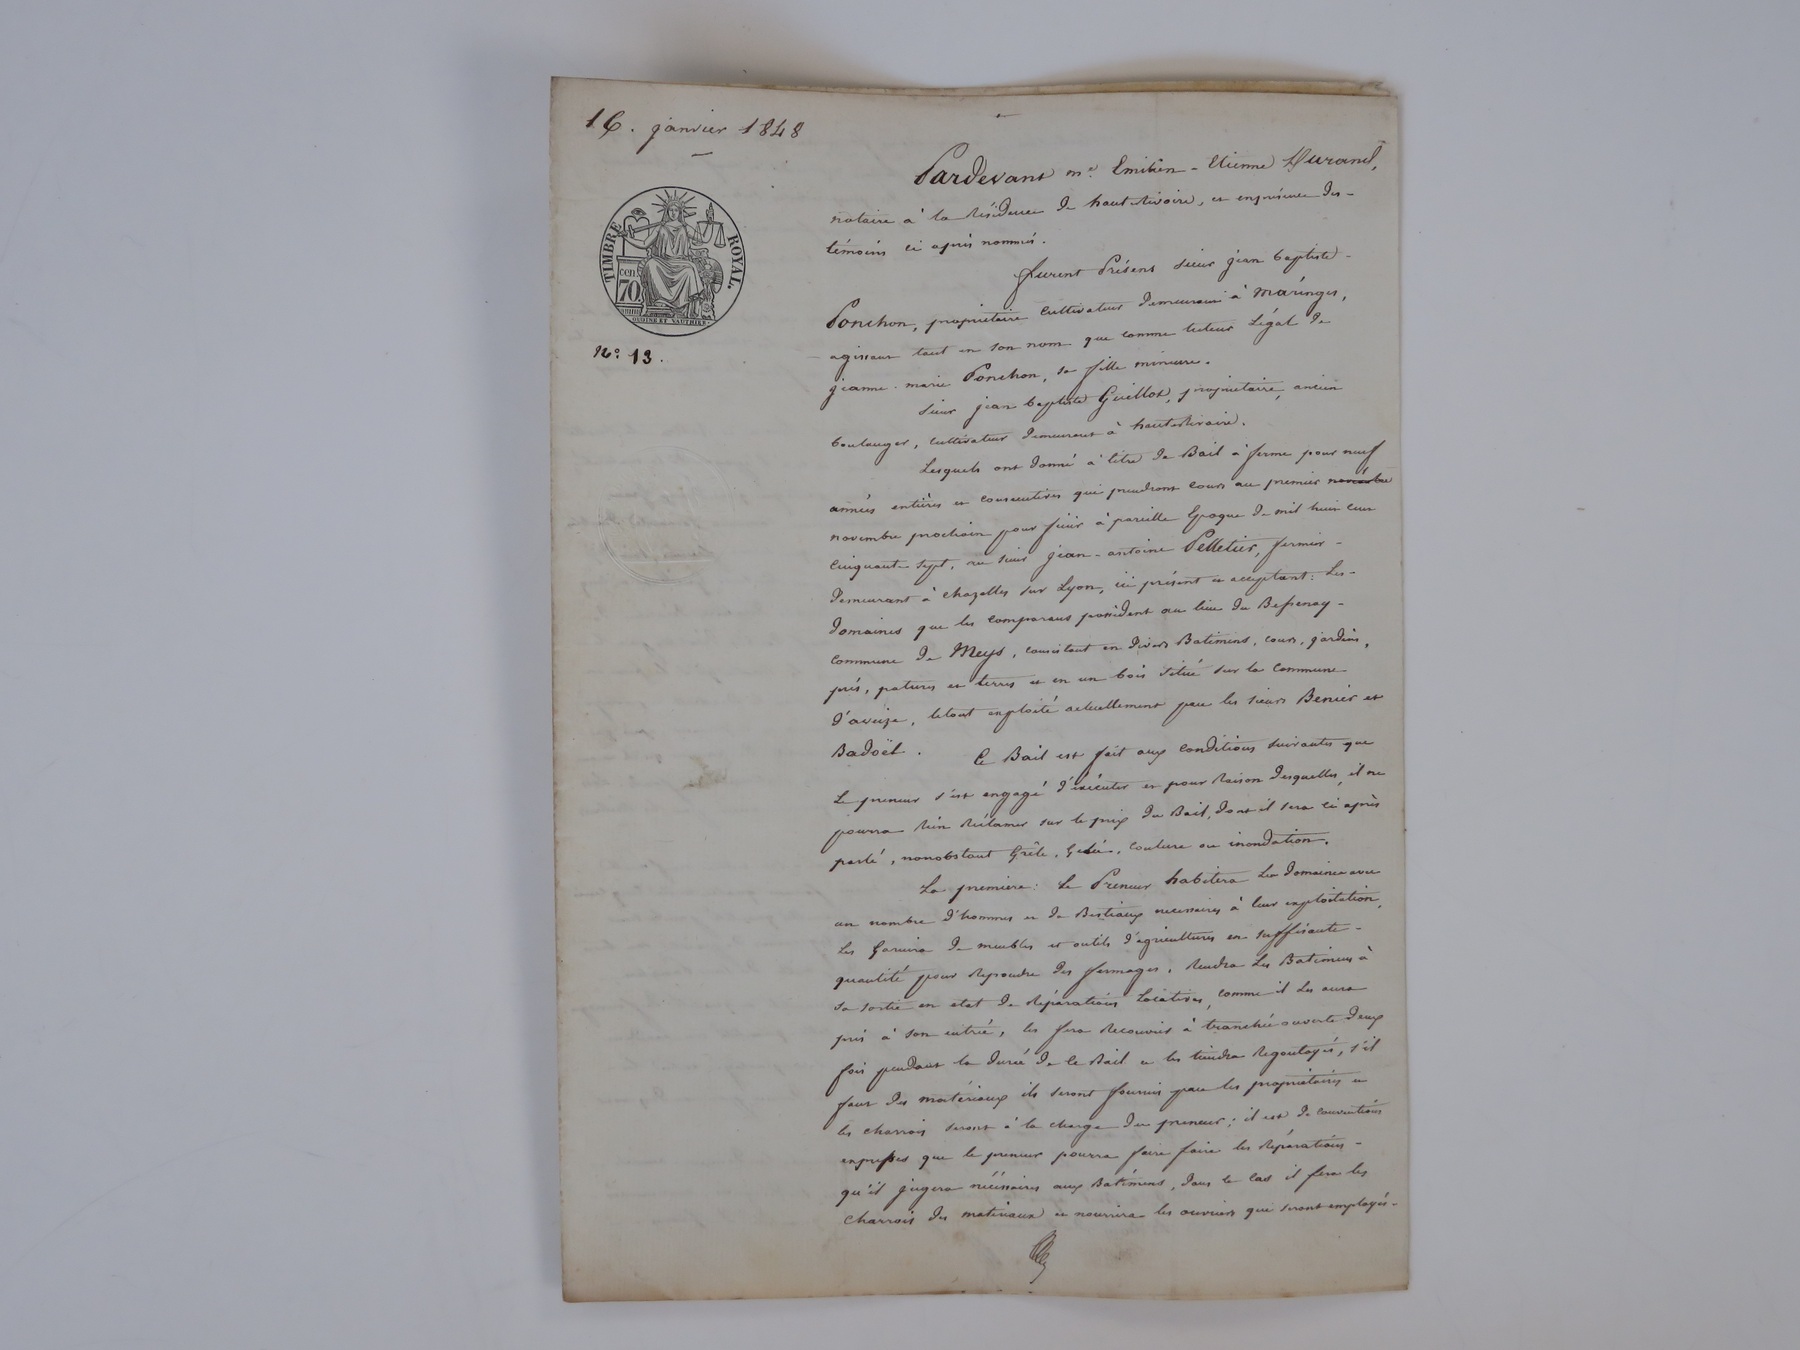 16. janvier 1848
TIMBRE ROYAL.
cen. 70.
N.o 13.
Pardevant me. Emilien-Etienne Durand,
notaire à la Résidence de hauterivoire, et en présence des-
témoins ci après nommés.
furent Présens sieur jean baptiste-
Ponchon, propriétaire cultivateur demeurant à Maringes,
agissant tant en son nom que comme tuteur Légal de
jeanne-marie Ponchon, sa fille mineure.
Sieur jean baptiste Guillot, propriétaire, ancien
boulanger, cultivateur demeurant à hauterivoire.
Lesquels ont donné à titre de Bail à ferme pour neuf
années entières et consecutives qui prendront cours au premier novembre
novembre prochain pour finir à pareille Epoque de mil huit cent
cinquante-sept, au sieur jean-antoine Pelletier, fermier-
demeurant à chazelles sur Lyon, ici présent et acceptant: Les-
domaines que les comparans possèdent au lieu du Bessenay-
commune de Meys, consistant en divers Batimens, cours, jardins,
prés, patures et terres et en un bois situé sur la Commune
d'aveize, letout exploité actuellement par les sieurs Benier et
Badoël. Ce Bail est fait aux conditions suivantes que
Le preneur s'est engagé d'éxécuter et pour Raison desquelles, il ne
pourra Rien Réclamer sur le prix du Bail, dont il sera ci après
parlé, nonobstant Grêle, Gelée, coulure ou inondation.
La premiere: Le Preneur habitera Les domaines avec
un nombre d'hommes et de Bestiaux necessaires à leur exploitation,
Les Garnira de meubles et outils d'agricultures en suffisante-
quantité pour Repondre des fermages. Rendra Les Batimens à
sa sortie en etat de Réparations Locatives, comme il Les aura
pris à son entrée, les fera Recouvrir à tranchée ouverte deux
fois pendant la durée de ce Bail et les tiendra Regoutoyés, s'il
faut des matériaux ils seront fournis par les propriétaires et
les charrois seront à la charge du preneur; il est de conventions
expresses que le preneur pourra faire faire les Réparations-
qu'il jugera nécessaires aux Batimens, dans ce cas il fera les
charrois des matériaux et nourrira les ouvriers qui seront employés-